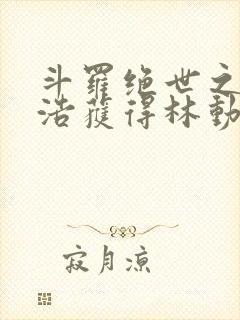 斗羅绝世之
浩獲得林動
寂月凉